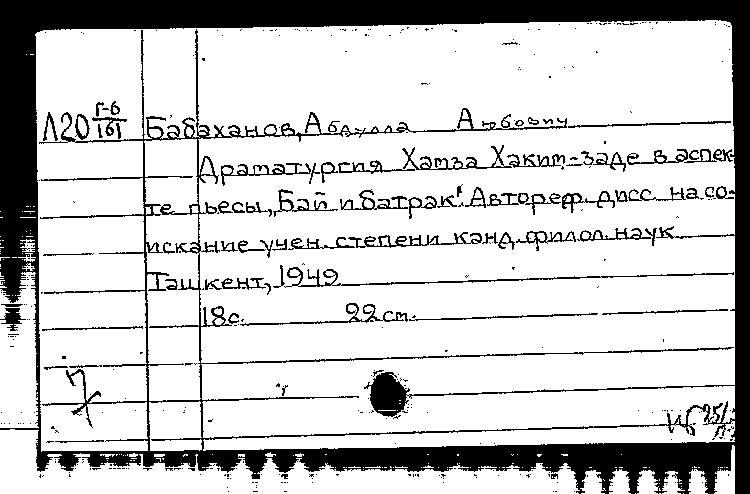 Л20 Г-6/161 Бабаханов, Абдулла Аюбович
Драматургия Хамза Хаким-заде в аспек-
те пьесы „Бай и батрак". Автореф. дисс. на со-
искание учен. степени канд. филол. наук
Ташкент, 1949
18с. 22 см.